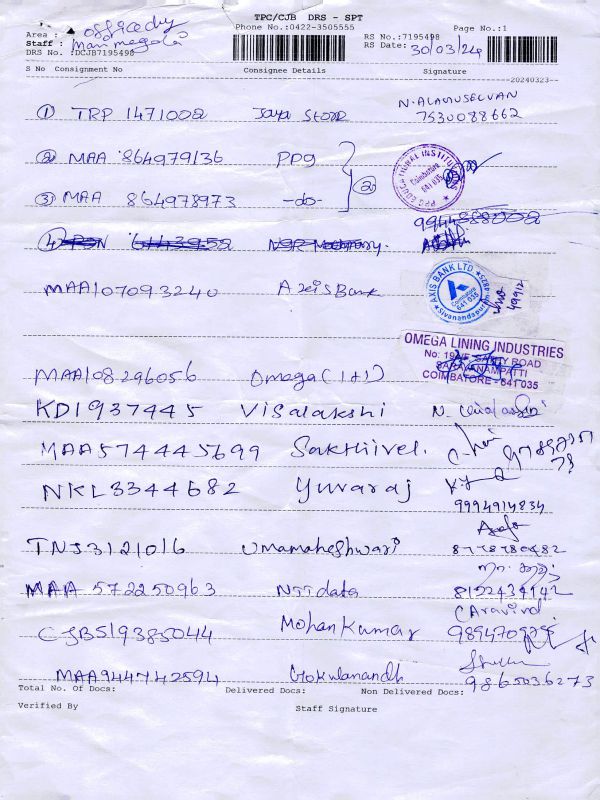 TPC/CJB DRS - SPT
Phone No.:0422-3505555
Page No.:1
Area :
Staff : Manimegala
DRS No. :DCJB7195498
RS No.:7195498
RS Date: 30/03/24
S No Consignment No Consignee Details Signature
20240323--
① TRP 1471002 Jaya Store N. ALAMUSELVAN
7530088662
② MAA 864979136 PPG
③ MAA 864978973 -do- ②
PPG EDUCATIONAL INSTITUTIONS Coimbatore 641 035
9944888002
4
MAA107093240 Axis Bank
AXIS BANK LTD Coimbatore 641 035 Sivanandapuram
49912
OMEGA LINING INDUSTRIES
COIMBATORE - 641 035
MAA108296056 Omega (1+1)
KDI937445 Visalakshi
MAA574445699 Sakthivel.
NKL3344682 Yuvaraj
9994914834
TNJ3121016 Umamaheshwari
8778780482
MAA 572250963 Nttdata 8122434142
C Aravind
CJB519385044 Mohan Kumar
MAA944742594 Gokulanandh 9865036273
Total No. Of Docs: Delivered Docs: Non Delivered Docs:
Verified By Staff Signature